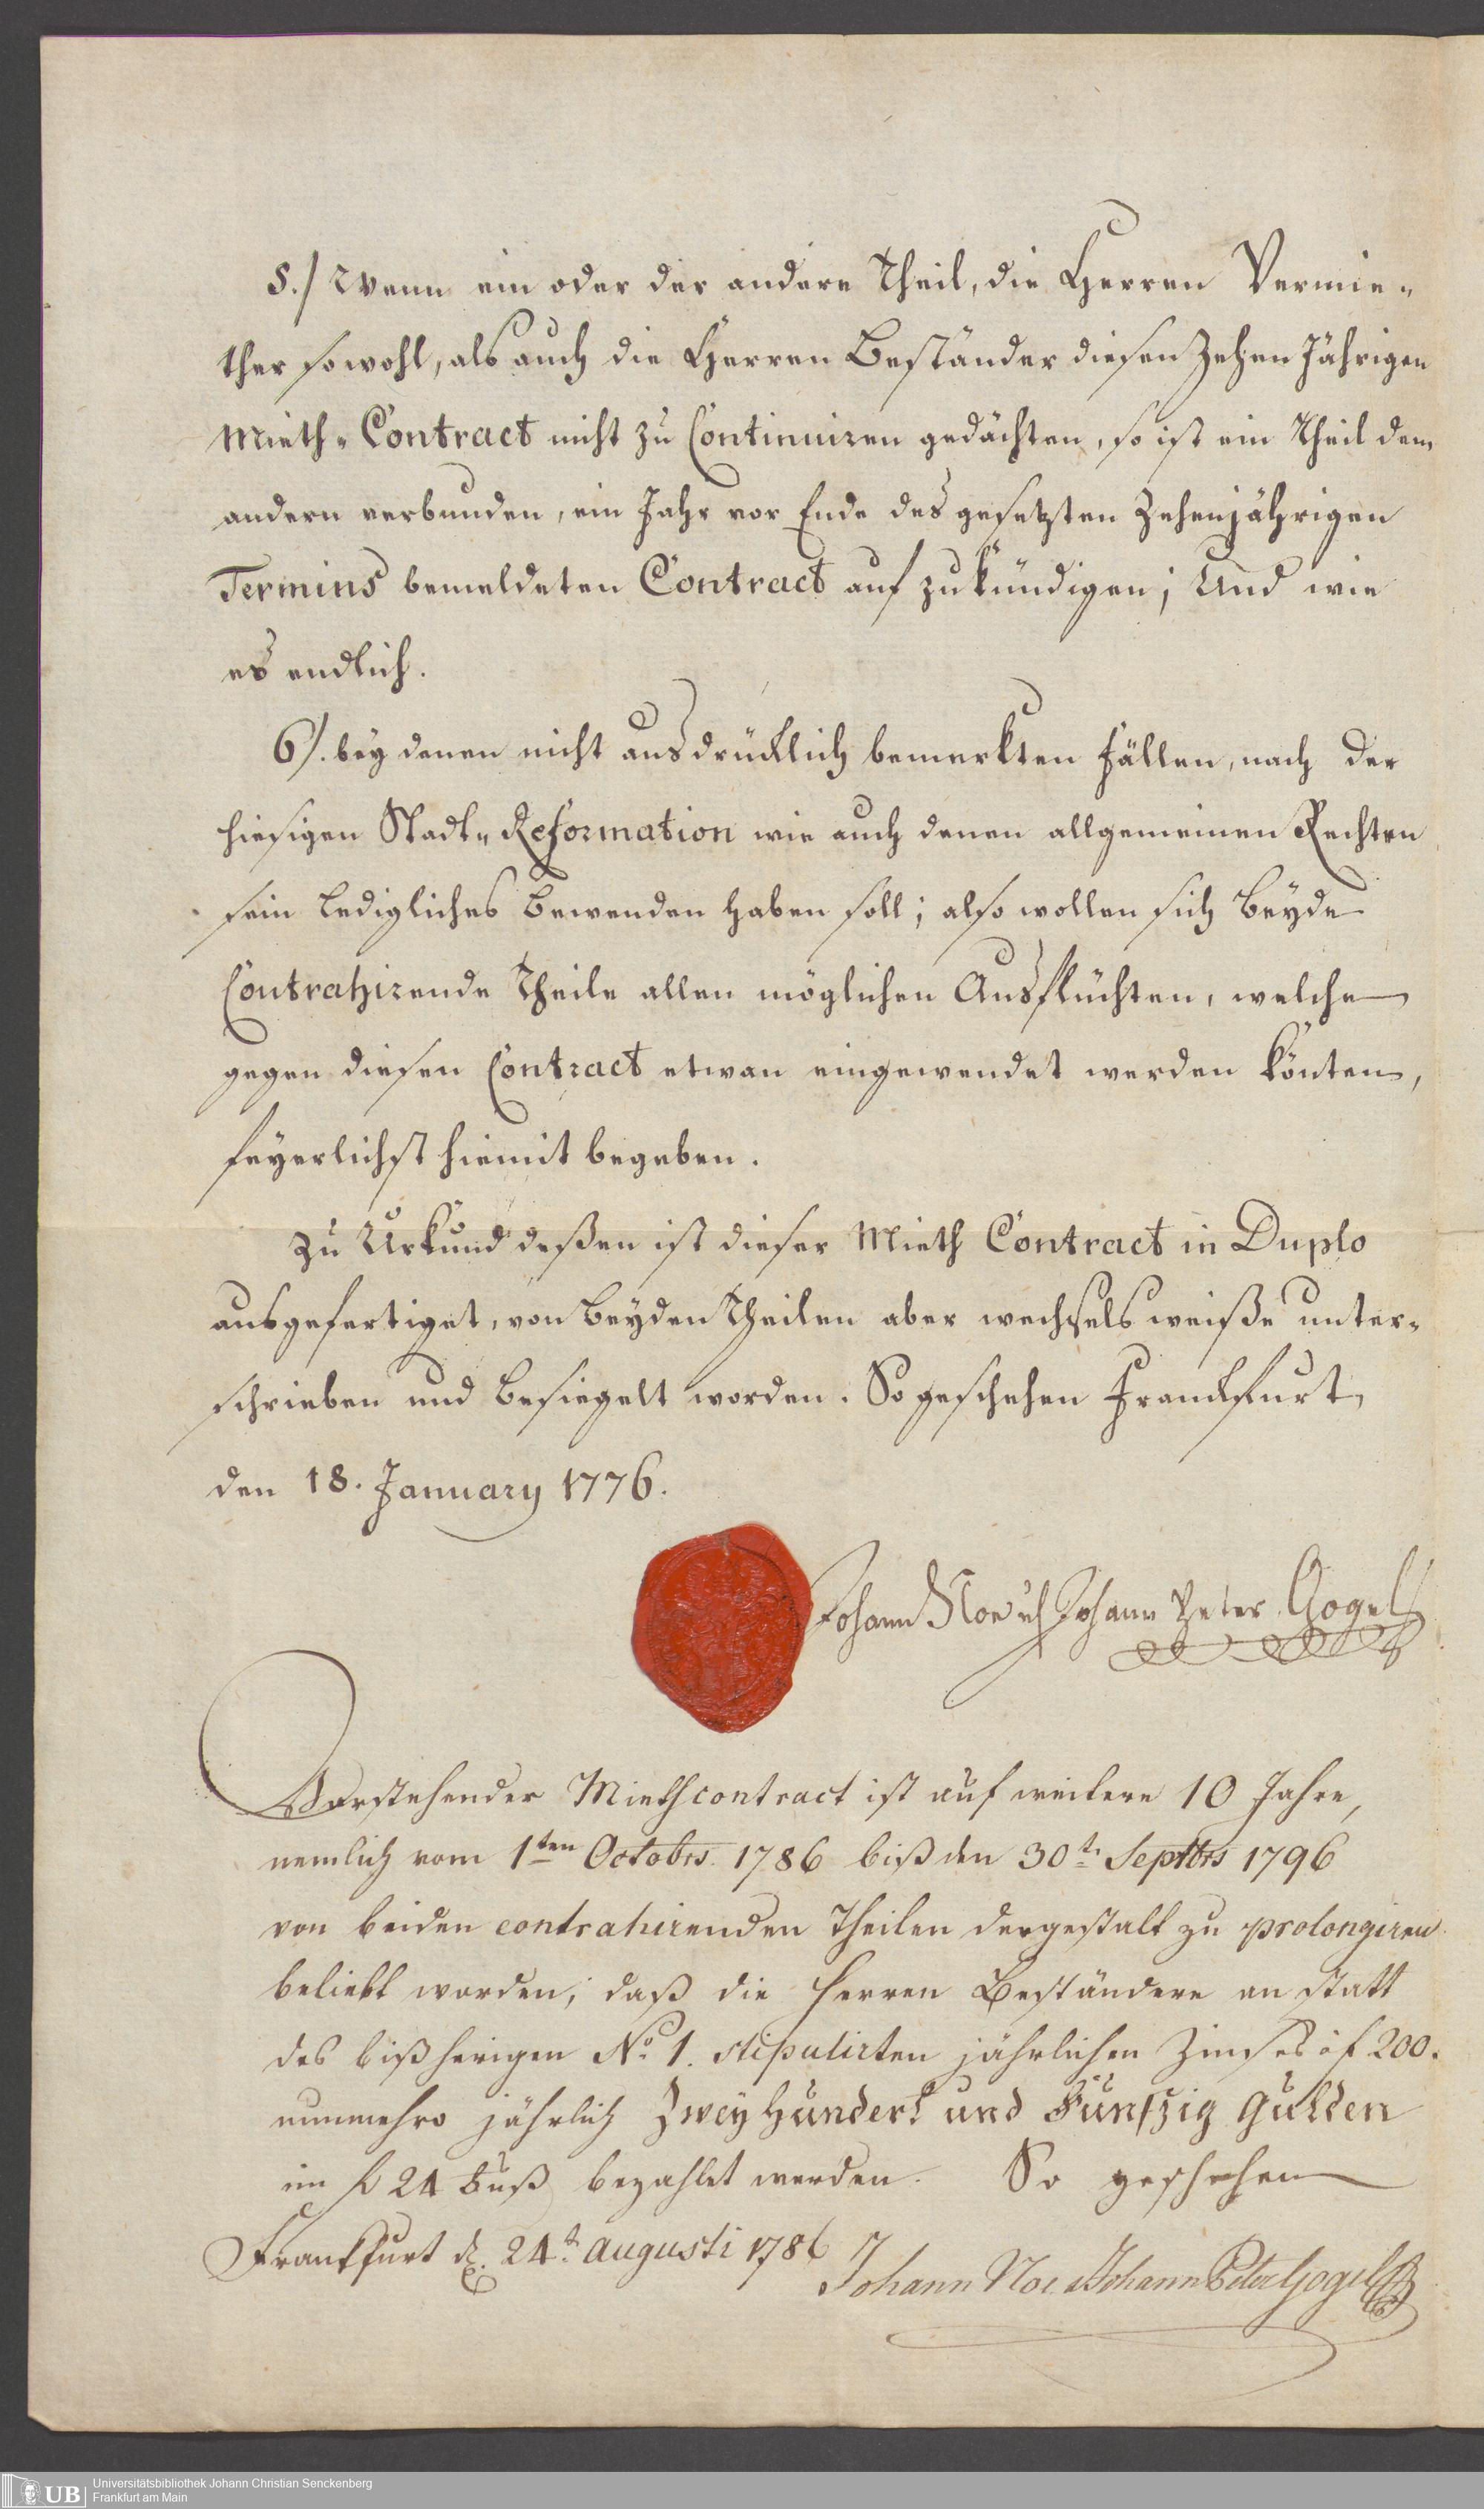 5./ Wenn ein oder der andere Theil, die Herren Vermie-
ther sowohl, als auch die Herren Beständer diesen Zehen Jährigen
Mieth-Contract nicht zu Continuiren gedächten, so ist ein Theil dem
andern verbunden, ein Jahr vor Ende des gesetzten Zehenjährigen
Termins bemeldeten Contract auf zukündigen; Und wie
es endlich.
6/. bey denen nicht ausdrücklich bemerkten Fällen, nach der
hiesigen Stadt-Reformation wie auch denen allgemeinen Rechten
sein Ledigliches Bewenden haben soll; also wollen sich Beyde
Contrahirende Theile allen möglichen Ausflüchten, welche
gegen diesen Contract etwan eingewendet werden könten,
feyerlichst hiemit begeben.
Zu Urkund deßen ist dieser Mieth Contract in Duplo
ausgefertiget, von Beyden Theilen aber wechselsweiße unter-
schrieben und Besiegelt worden. So geschehen Franckfurt,
den 18. January 1776.
Johann Noe & Johann Peter Gogel
Vorstehender Miethcontract ist auf weitere 10 Jahre,
nemlich vom 1ten Octobrs. 1786 biß den 30t. Septbrs 1796
von beiden contrahirenden Theilen dergestalt zu prolongiren
beliebt worden; daß die Herren Beständere an statt
des bißherigen No. 1. stipulirten jährlichen Zinses à f 200.
nunmehro jährlich Zwey Hundert und Funfzig Gulden
im f 24 Fuß bezahlet werden. So geschehen
Frankfurt d. 24t. Augusti 1786
Johann Noe & Johann Peter Gogel
UB Universitätsbibliothek Johann Christian Senckenberg
Frankfurt am Main